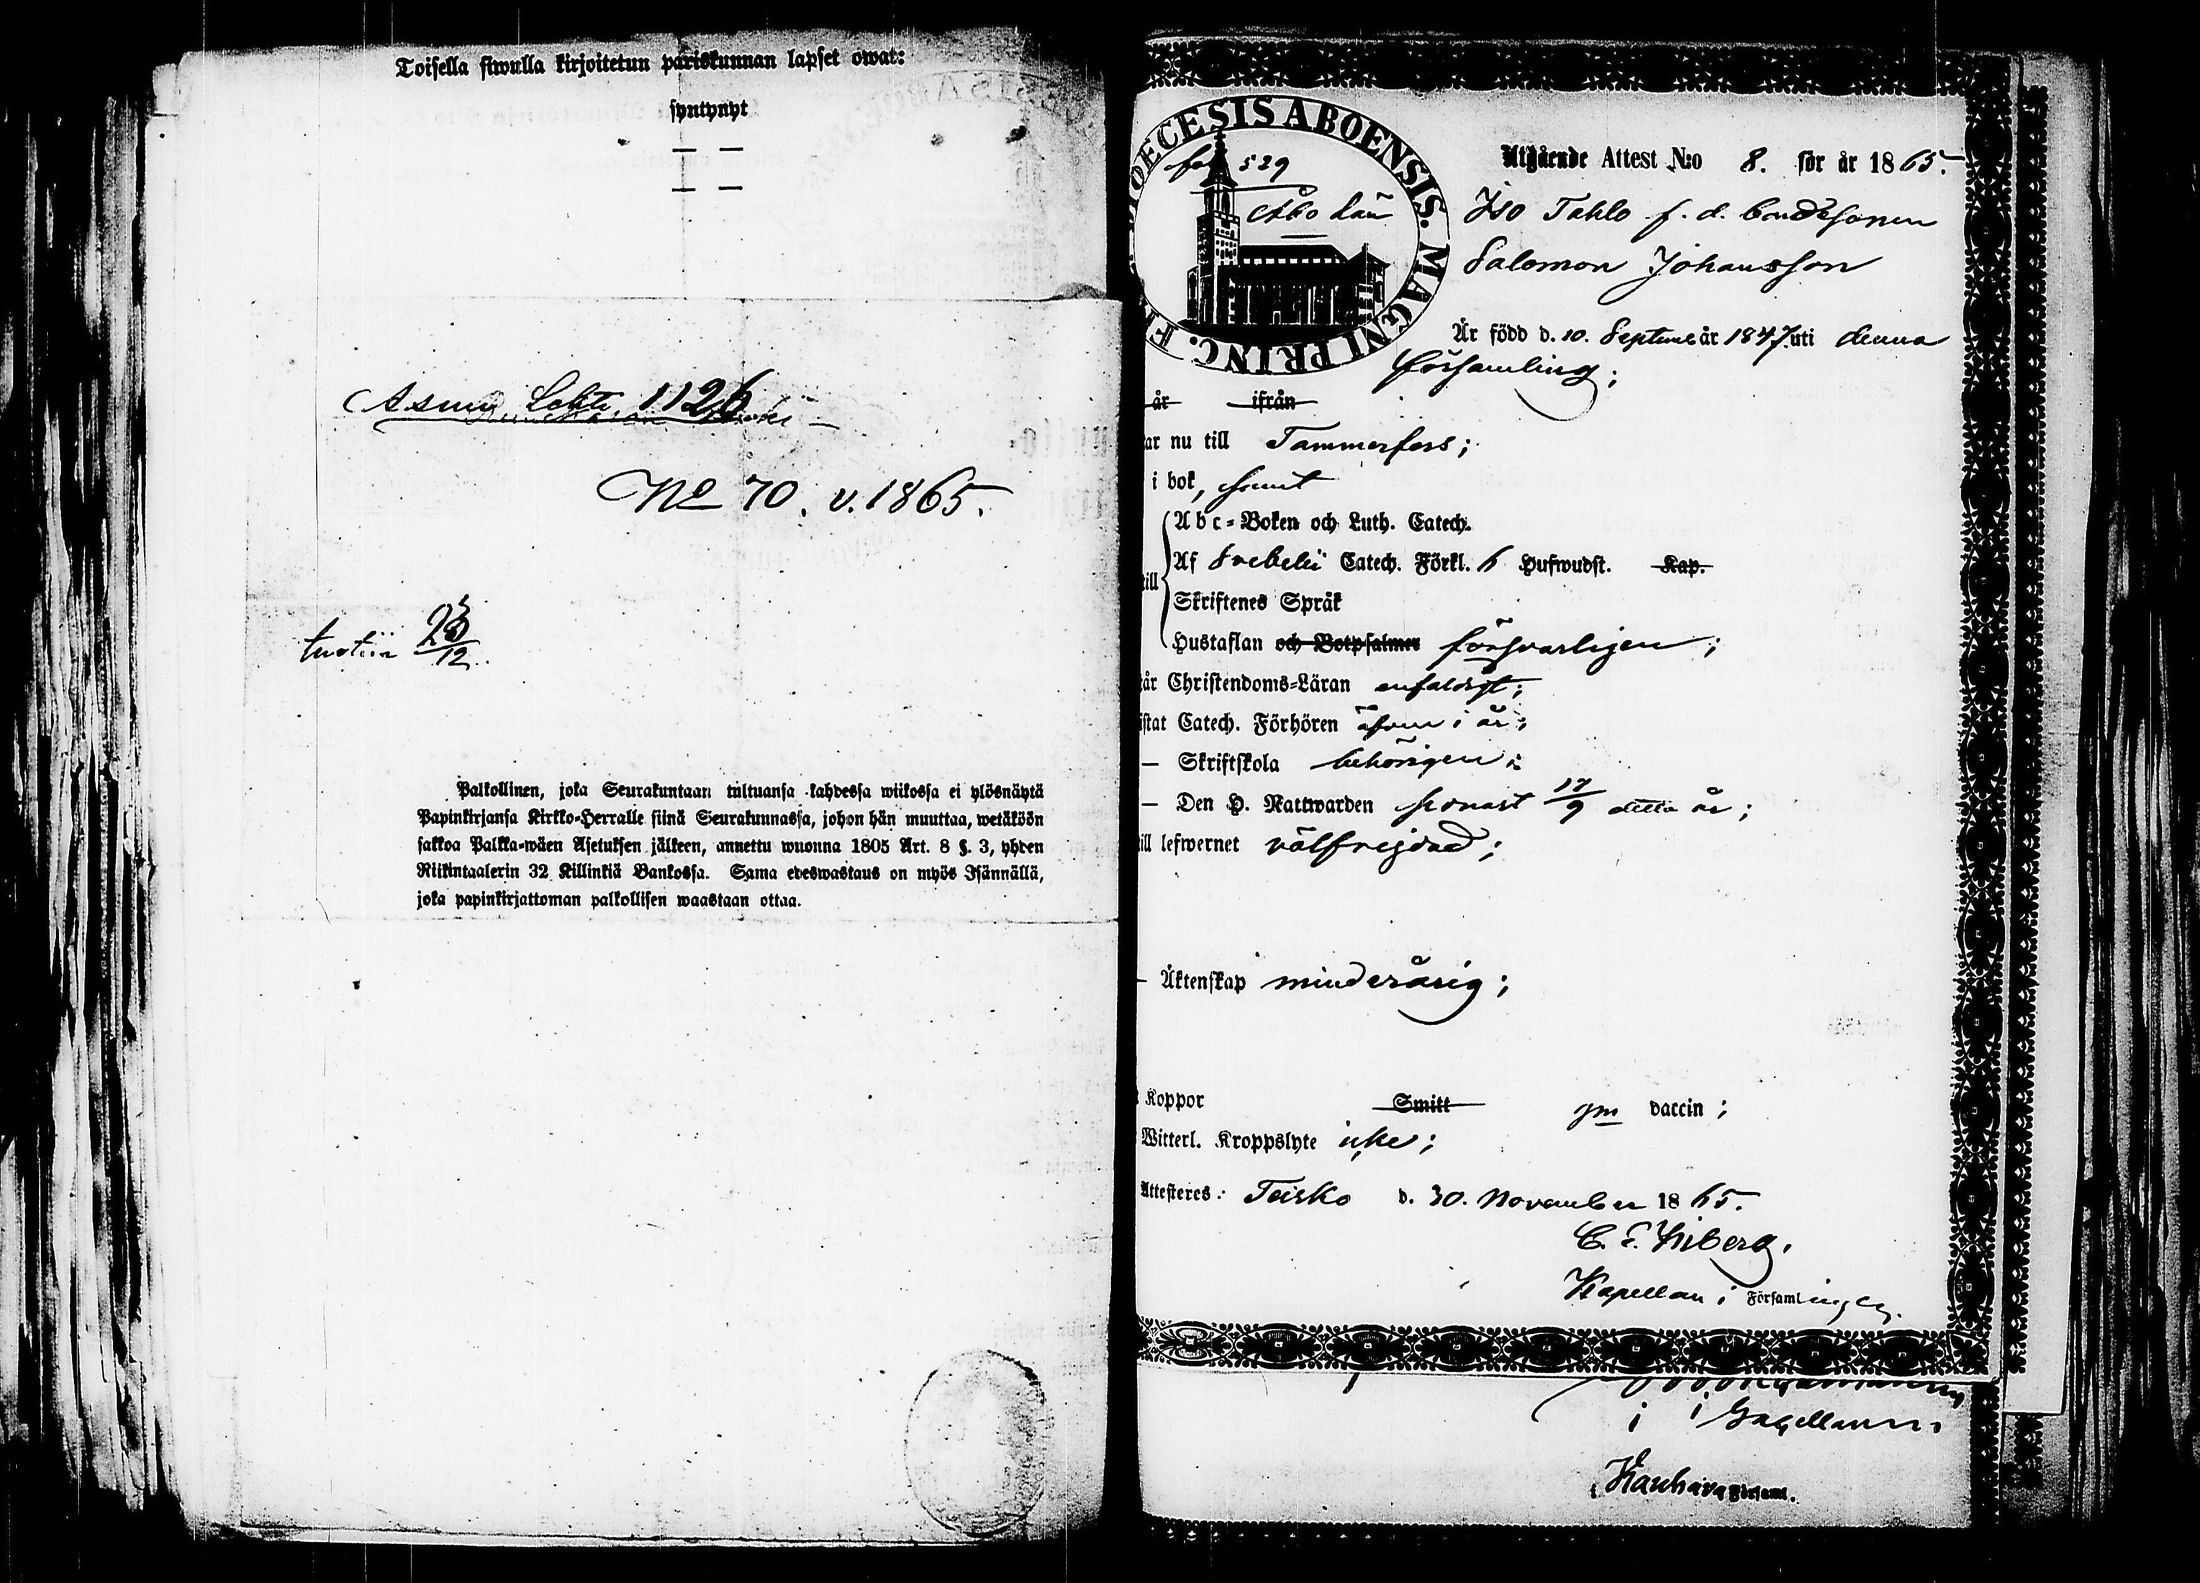 Toisella siwulla kirjoitetun pariskunnan lapset owat:
syntynyt
— —
— —
Asuu Lehti 1126
No 70. v. 1865.
tuotiin 23/12.
Palkollinen, joka Seurakuntaan tultuansa kahdessa wiikossa ei ylösnäytä
Papinkirjansa Kirkko-Herralle siinä Seurakunnassa, johon hän muuttaa, wetäköön
sakkoa Palkka-wäen Asetuksen jälkeen, annettu wuonna 1805 Art. 8 §. 3, yhden
Riikintaalerin 32 Killinkiä Bankossa. Sama edeswastaus on myös Isännällä,
joka papinkirjattoman palkollisen waastaan ottaa.
DIOECESIS ABOENSIS. MAGNI PRINC. F
529
Åbo Län
Utgående Attest N:o 8. för år 1865.
Iso Tahlo f. d. bondesonen
Salomon Johansson
Är född d. 10. Septemb år 1847 uti denna
församling;
år ifrån
ar nu till Tammerfors;
i bok, samt
Abc-Boken och Luth. Catech.
Af Svebelii Catech. Förkl. 6 Hufwudst. Kap.
till
Skriftenes Språk
Hustaflan och Botpsalmer försvarligen;
år Christendoms-Läran enfaldigt;
istat Catech. Förhören äfven i år;
— Skriftskola behörigen;
— Den H. Nattwarden senast 17/9 detta år;
ill lefwernet välfrejdad;
— Äktenskap minderårig;
Koppor Smitt gm vaccin;
Witterl. Kroppslyte icke;
Attesteres: Teisko d. 30. November 1865.
Kapellan i Församlingen.
i Kauhava Församl.